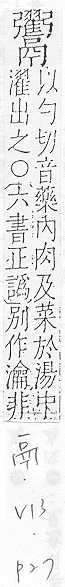 鬻
以勺切音藥內肉及菜於湯中
濯出之〇六書正譌別作瀹非
鬲.
V13.
P27